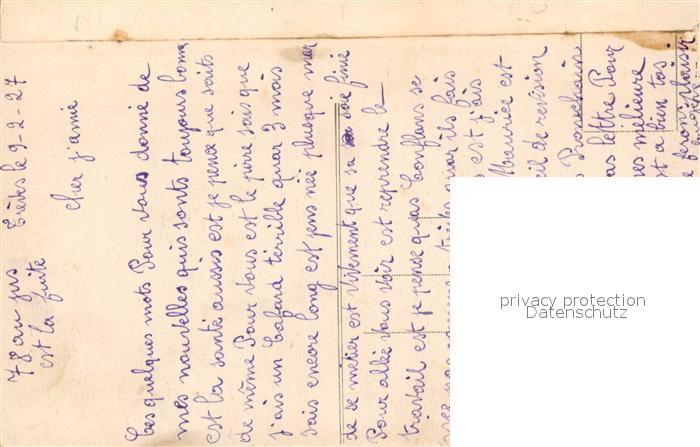 78 au jus Trèves le 9-2-27
est la fuite
Cher j'amie
Ces quelques mots Pour vous donné de
mes nouvelles qui sonts toujours bonne
est la santé aussis est je pence que soits
de même Pour vous est le pirre sais que
j'ais un Cafard terrible quar 3 mois
sais encore long est j'ens n'ée plusque mar
de se metier est vivement que sa soie finie
Pour allée vous voir est reprendre le
travail est je pense quas Conflans se
mée pas
quar ils fais
est j'ais
Maurice est
il de revision
Prochain
as lettre Pour
mes milieure
est a bien tos
privacy protection
Datenschutz